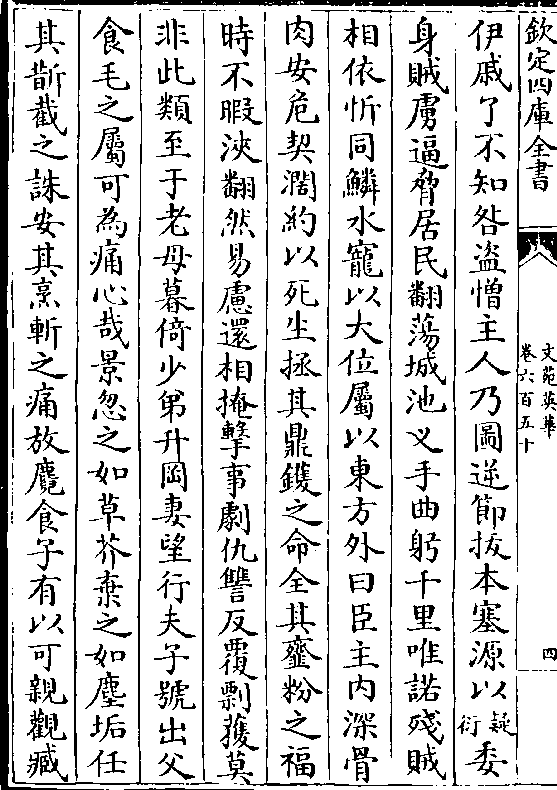 欽定四庫全書
文苑英華
卷六百五十
四
伊戚了不知咎盜憎主人乃圖逆節拔本塞源以疑衍委
身賊虜逼脅居民翻蕩城池乂手曲躬千里唯諾殘賊
相依忻同鱗水寵以大位屬以東方外曰臣主内深骨
肉安危契濶約以死生拯其鼎鑊之命全其虀粉之福
時不暇浹翻然易慮還相掩擊事劇仇讐反覆剽獲莫
非此類至于老母暮倚少弟升岡妻望行夫子號出父
食毛之屬可為痛心哉景忽之如草芥棄之如塵垢任
其斮截之誅安其烹斬之痛放麑食子有以可親觀臧